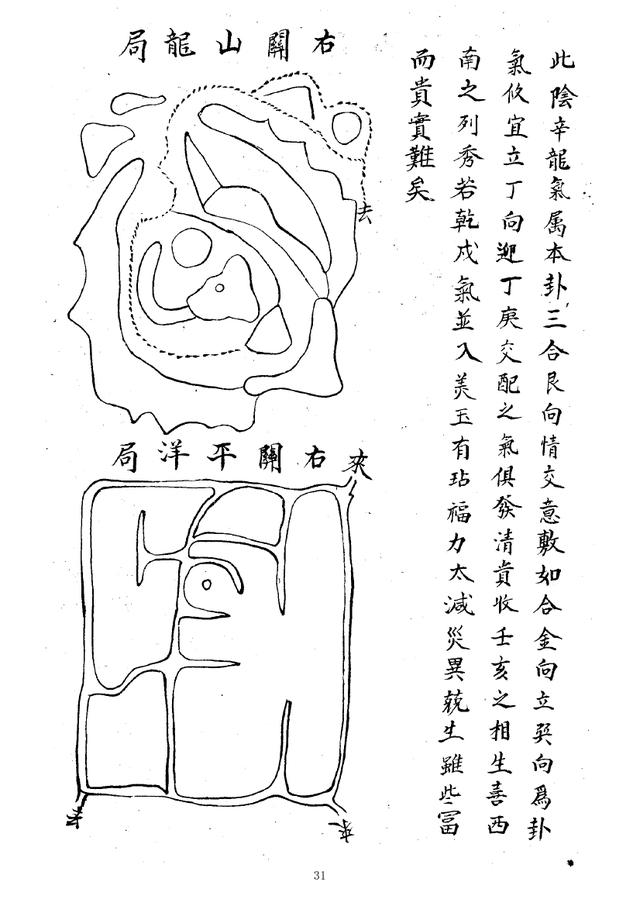 此陰辛龍氣属本卦三合艮向情交意敷如合金向立巽向爲卦
氣攸宜立丁向迎丁庚交配之氣俱發清貴收壬亥之相生喜西
南之列秀若乾戌氣並入美玉有玷福力太減災異藂生雖些冨
而貴實難矣
右關山龍局
去
右關平洋局
來
去
來
31